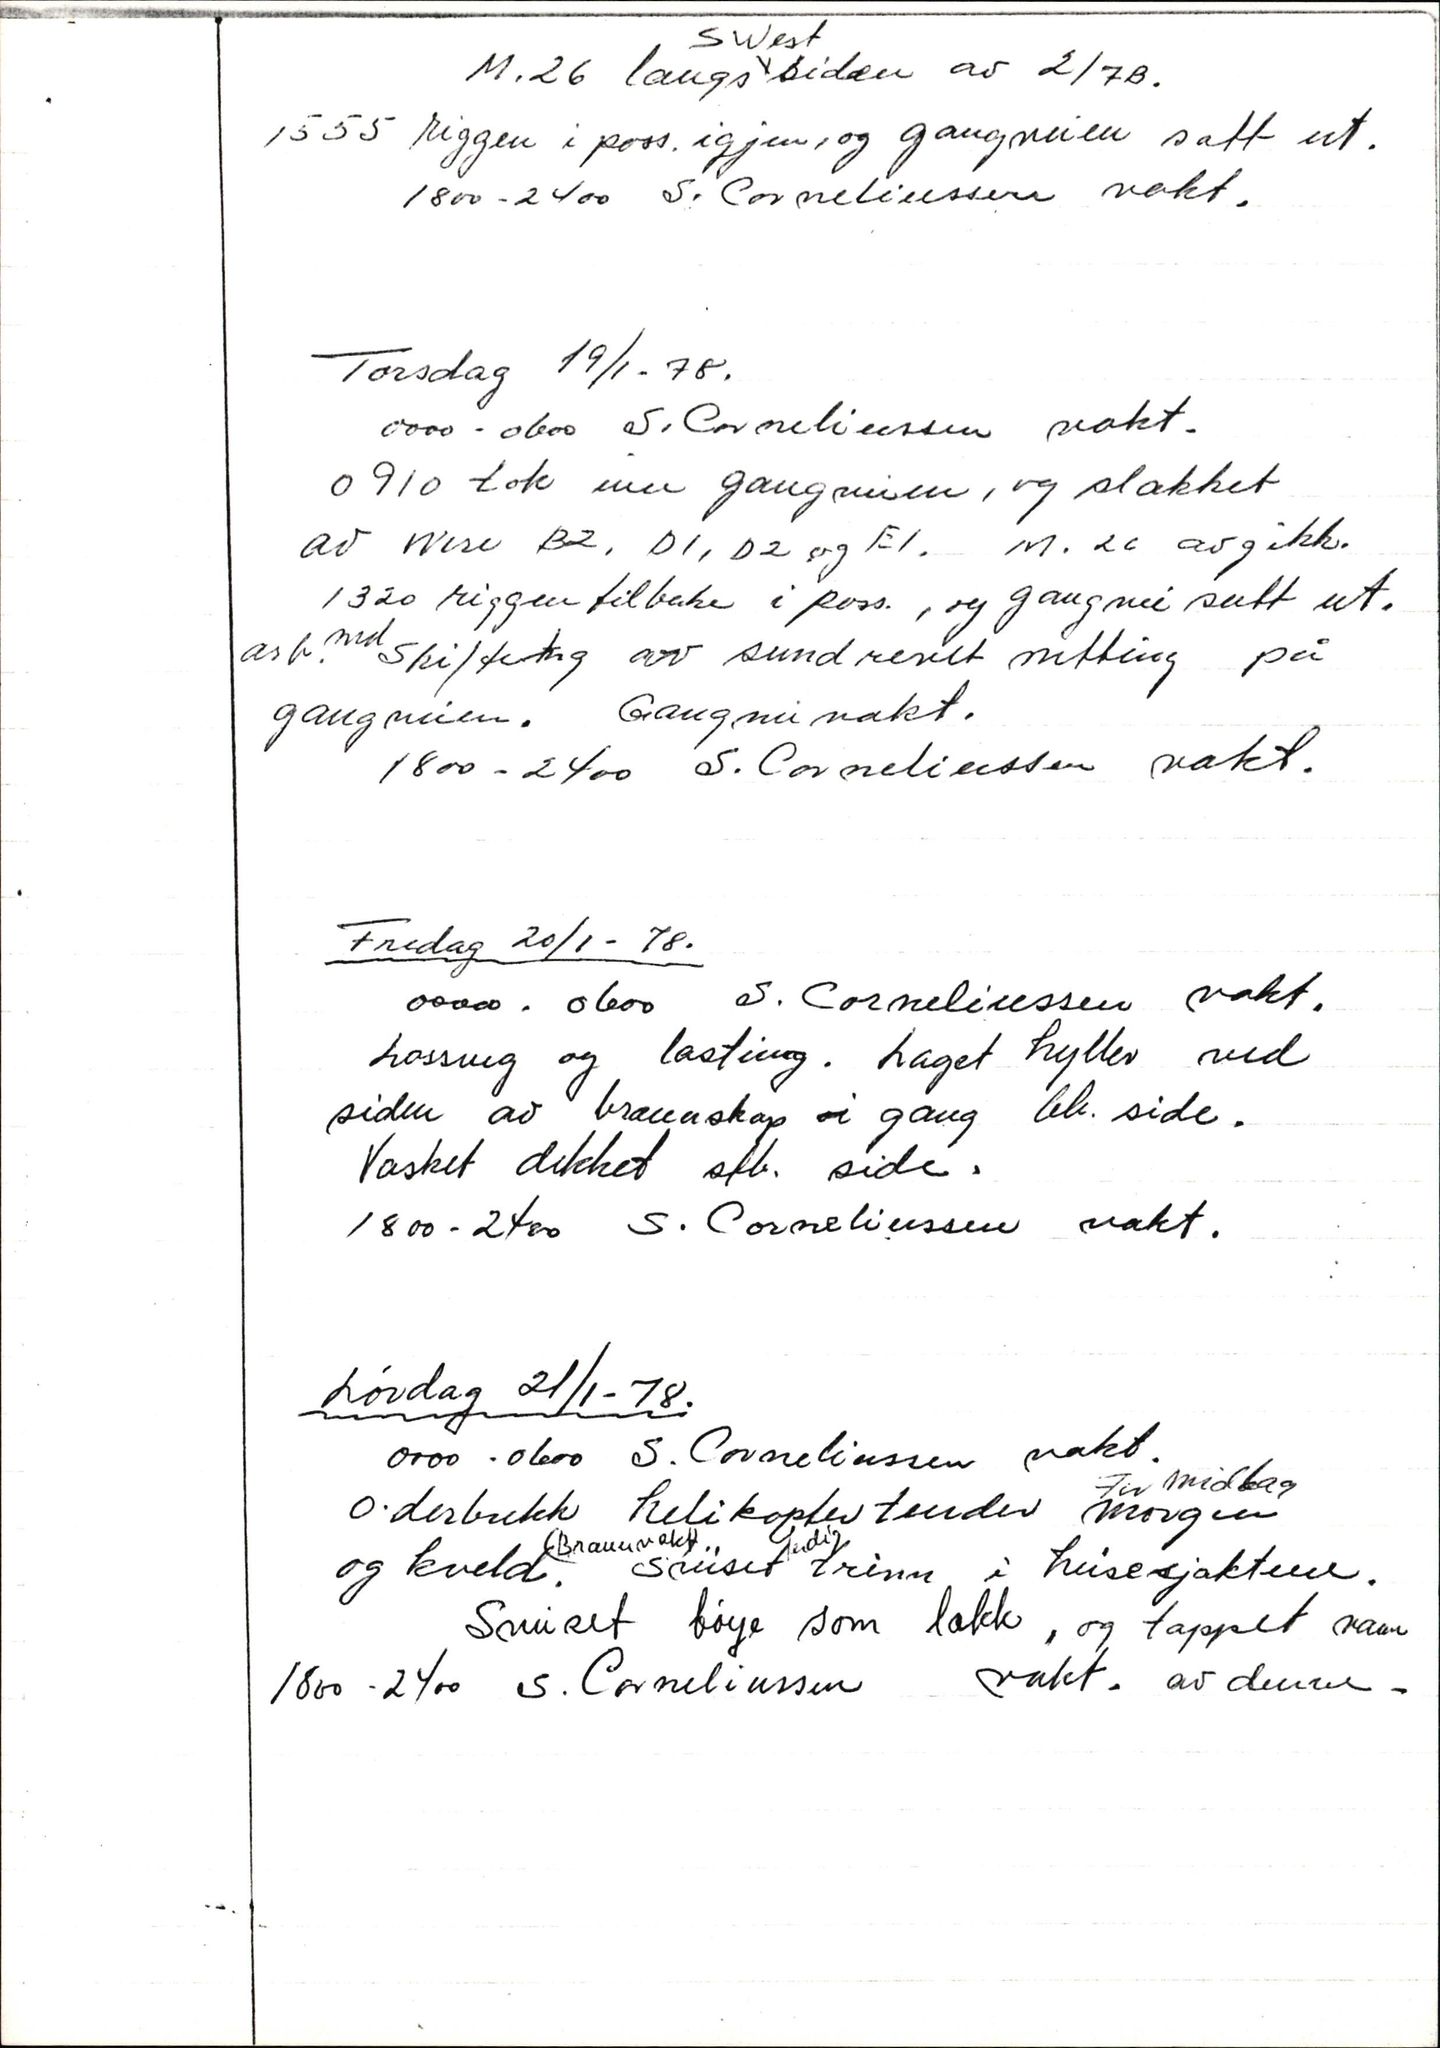 S West
M. 26 langs siden av 2/7B.
1555 riggen i poss. igjen, og gangveien satt ut.
1800 - 2400 S. Corneliussen vakt.
Torsdag 19/1 - 78.
0000 - 0600 S. Corneliussen vakt.
0910 tok inn gangveien, og slakket
av wire B2, D1, D2 og E1. M. 26 avgikk.
1320 riggen tilbake i poss., og gangvei satt ut.
arb. md Skifting av sundrevet netting på
gangveien. Gangvei vakt.
1800 - 2400 S. Corneliussen vakt.
Fredag 20/1 - 78.
0000 - 0600 S. Corneliussen vakt.
Lossing og lasting. Laget hyller ved
siden av brannskap i gang bb. side.
Vasket dekket stb. side.
1800 - 2400 S. Corneliussen vakt.
Lørdag 21/1 - 78.
0000 - 0600 S. Corneliussen vakt.
middag
helikopter tender morgen
(Brannvakt. ferdig
og kveld. Sveiset trinn i heisesjaktene.
Sveiset bøye som lakk, og tappet vann
1800 - 2400 S. Corneliussen vakt. av denne -